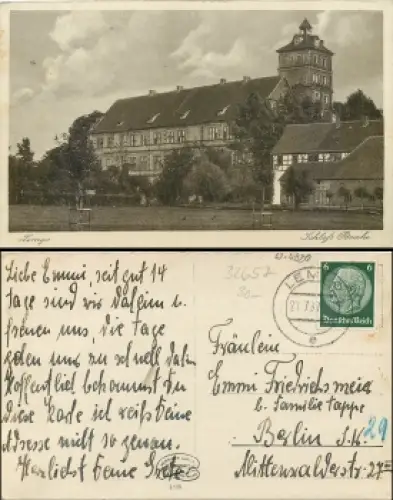 Lemgo
Schloß Brake
Liebe Emmi, seit gut 14
Tage sind wir daheim u.
freuen uns, die Tage
gehen uns zu schnell dahin
Hoffentlich bekommst Du
diese Karte ich weiß Deine
Adresse nicht so genau.
Herzlichst Deine Grete
32657
LEM
e
6 6
Deutsches Reich
Fräulein
Emmi Friedrichsmeier
b. Familie Tappe
Berlin S.W. 29
Mittenwalderstr. 27